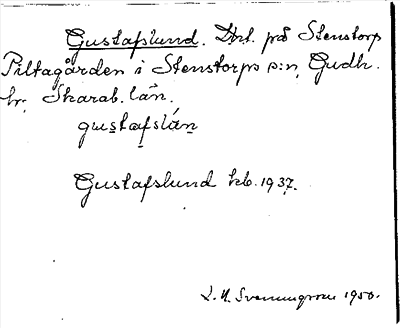 Gustafslund. Drt. på Stenstorp
Piltagården i Stenstorps s:n, Gudh.
hr. Skarab. län.
gustafslán
Gustafslund kb. 1937.
1950.